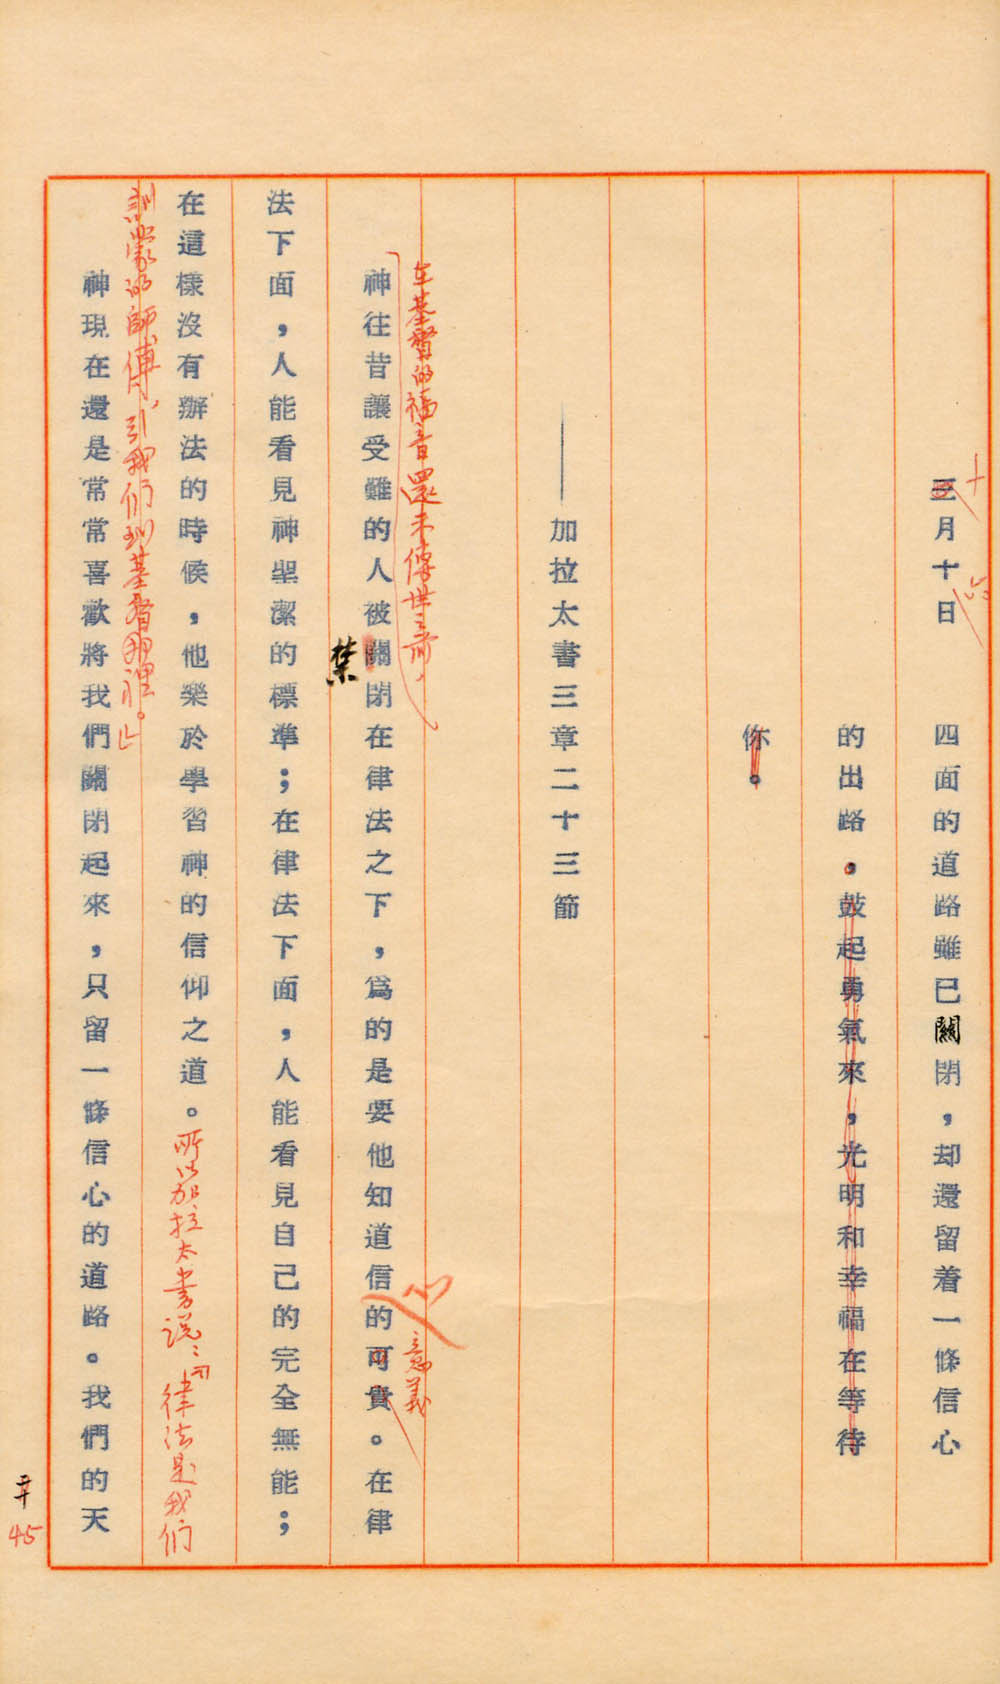 三月十日
十
四面的道路雖已關閉，却還留着一條信心
的出路，鼓起勇氣來，光明和幸福在等待
你。
——加拉太書三章二十三節
在基督的福音還未傳世之前，
神往昔讓受難的人被關閉在律法之下，爲的是要他知道信的可貴。在律
禁
心
意義
法下面，人能看見神聖潔的標準；在律法下面，人能看見自己的完全無能；
在這樣沒有辦法的時候，他樂於學習神的信仰之道。所以加拉太書說：「律法是我們
訓蒙的師傅，引我們到基督那裡。」
神現在還是常常喜歡將我們關閉起來，只留一條信心的道路。我們的天
45